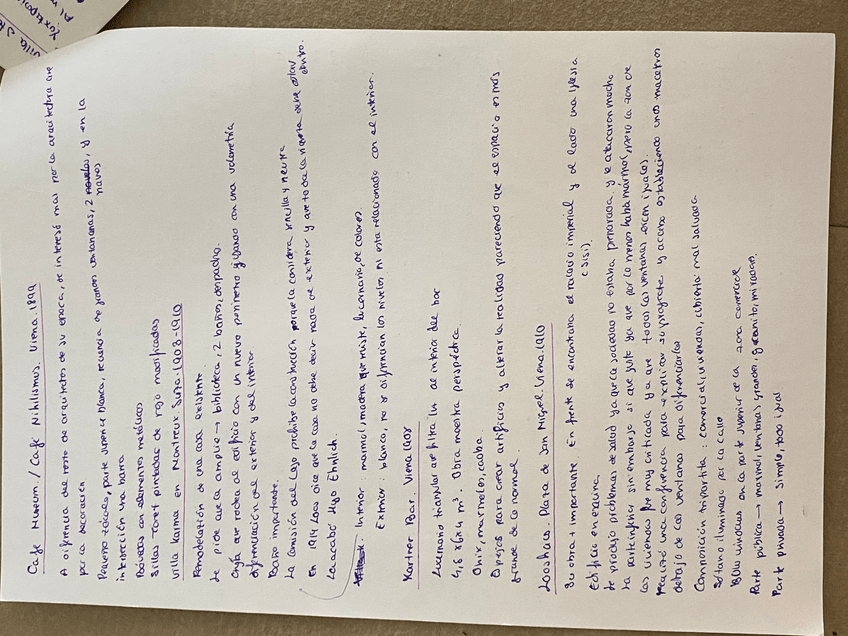 Cafe Museum / Cafe Nihilismus. Viena. 1899
A diferencia del resto de arquitectos de su época, se interesó mas por la arquitectura que
por la decoración
Pequeño zócalo, parte superior blanca, secuencia de grandes ventananas, 2 naves, y en la
intersección una barra
Bóvedas con elementos metálicos
Sillas Tonet pintadas de rojo modificadas
Villa Karma en Montreux Suiza. 1903-1910
Remodelación de una casa existente
Se pide que la amplie → biblioteca, 2 baños, despacho.
Crujía que rodea al edificio con un nuevo perímetro y juando con una volumetría
diferenciación del exterior y del interior
Baño importante.
La comisión del Lago prohibe la construcción porque la considera sencilla y neutra
En 1914 Loos dice que la casa no debe decir nada de exterior y que toda la riqueza debe estar
dentro.
La acabó Hugo Ehrlich.
Interior: marmol, madera que reviste, lucernario, de colores.
Exterior: blanco, no se diferencian los niveles ni esta relacionado con el interior.
Kartner Bar. Viena 1908
Lucernario triangular que filtra luz al interior del bar
4,5 x 6 x 4 m³. Obra maestra perspéctica.
Onix, marmoles, caoba.
Espejos para crear artificios y alterar la realidad pareciendo que el espacio es más
grande de lo normal.
Looshaus. Plaza de San Miguel. Viena. 1910
Su obra + importante. En frente se encontraba el palacio imperial y al lado una iglesia
(Sisi).
Edificio en esquina.
Se produjo problemas de salud ya que la sociedad no estaba preparada y le atacaron mucho
La parte inferior sin embargo si que gustó ya que por lo menos había mármol, pero la zona de
las viviendas fue muy criticada ya que todas las ventanas eran iguales.
Realizó una conferencia para explicar su proyecto y acabo estableciendo unos maceteros
debajo de las ventanas para diferenciarlas
Composición tripartita: comercial, vivienda, cubierta mal salvada
Sótano iluminado por la calle
Bow windows en la parte superior de la zona comercial
Parte pública → marmol, ventanas grandes, granito, mirador.
Parte privada → simple, todo igual